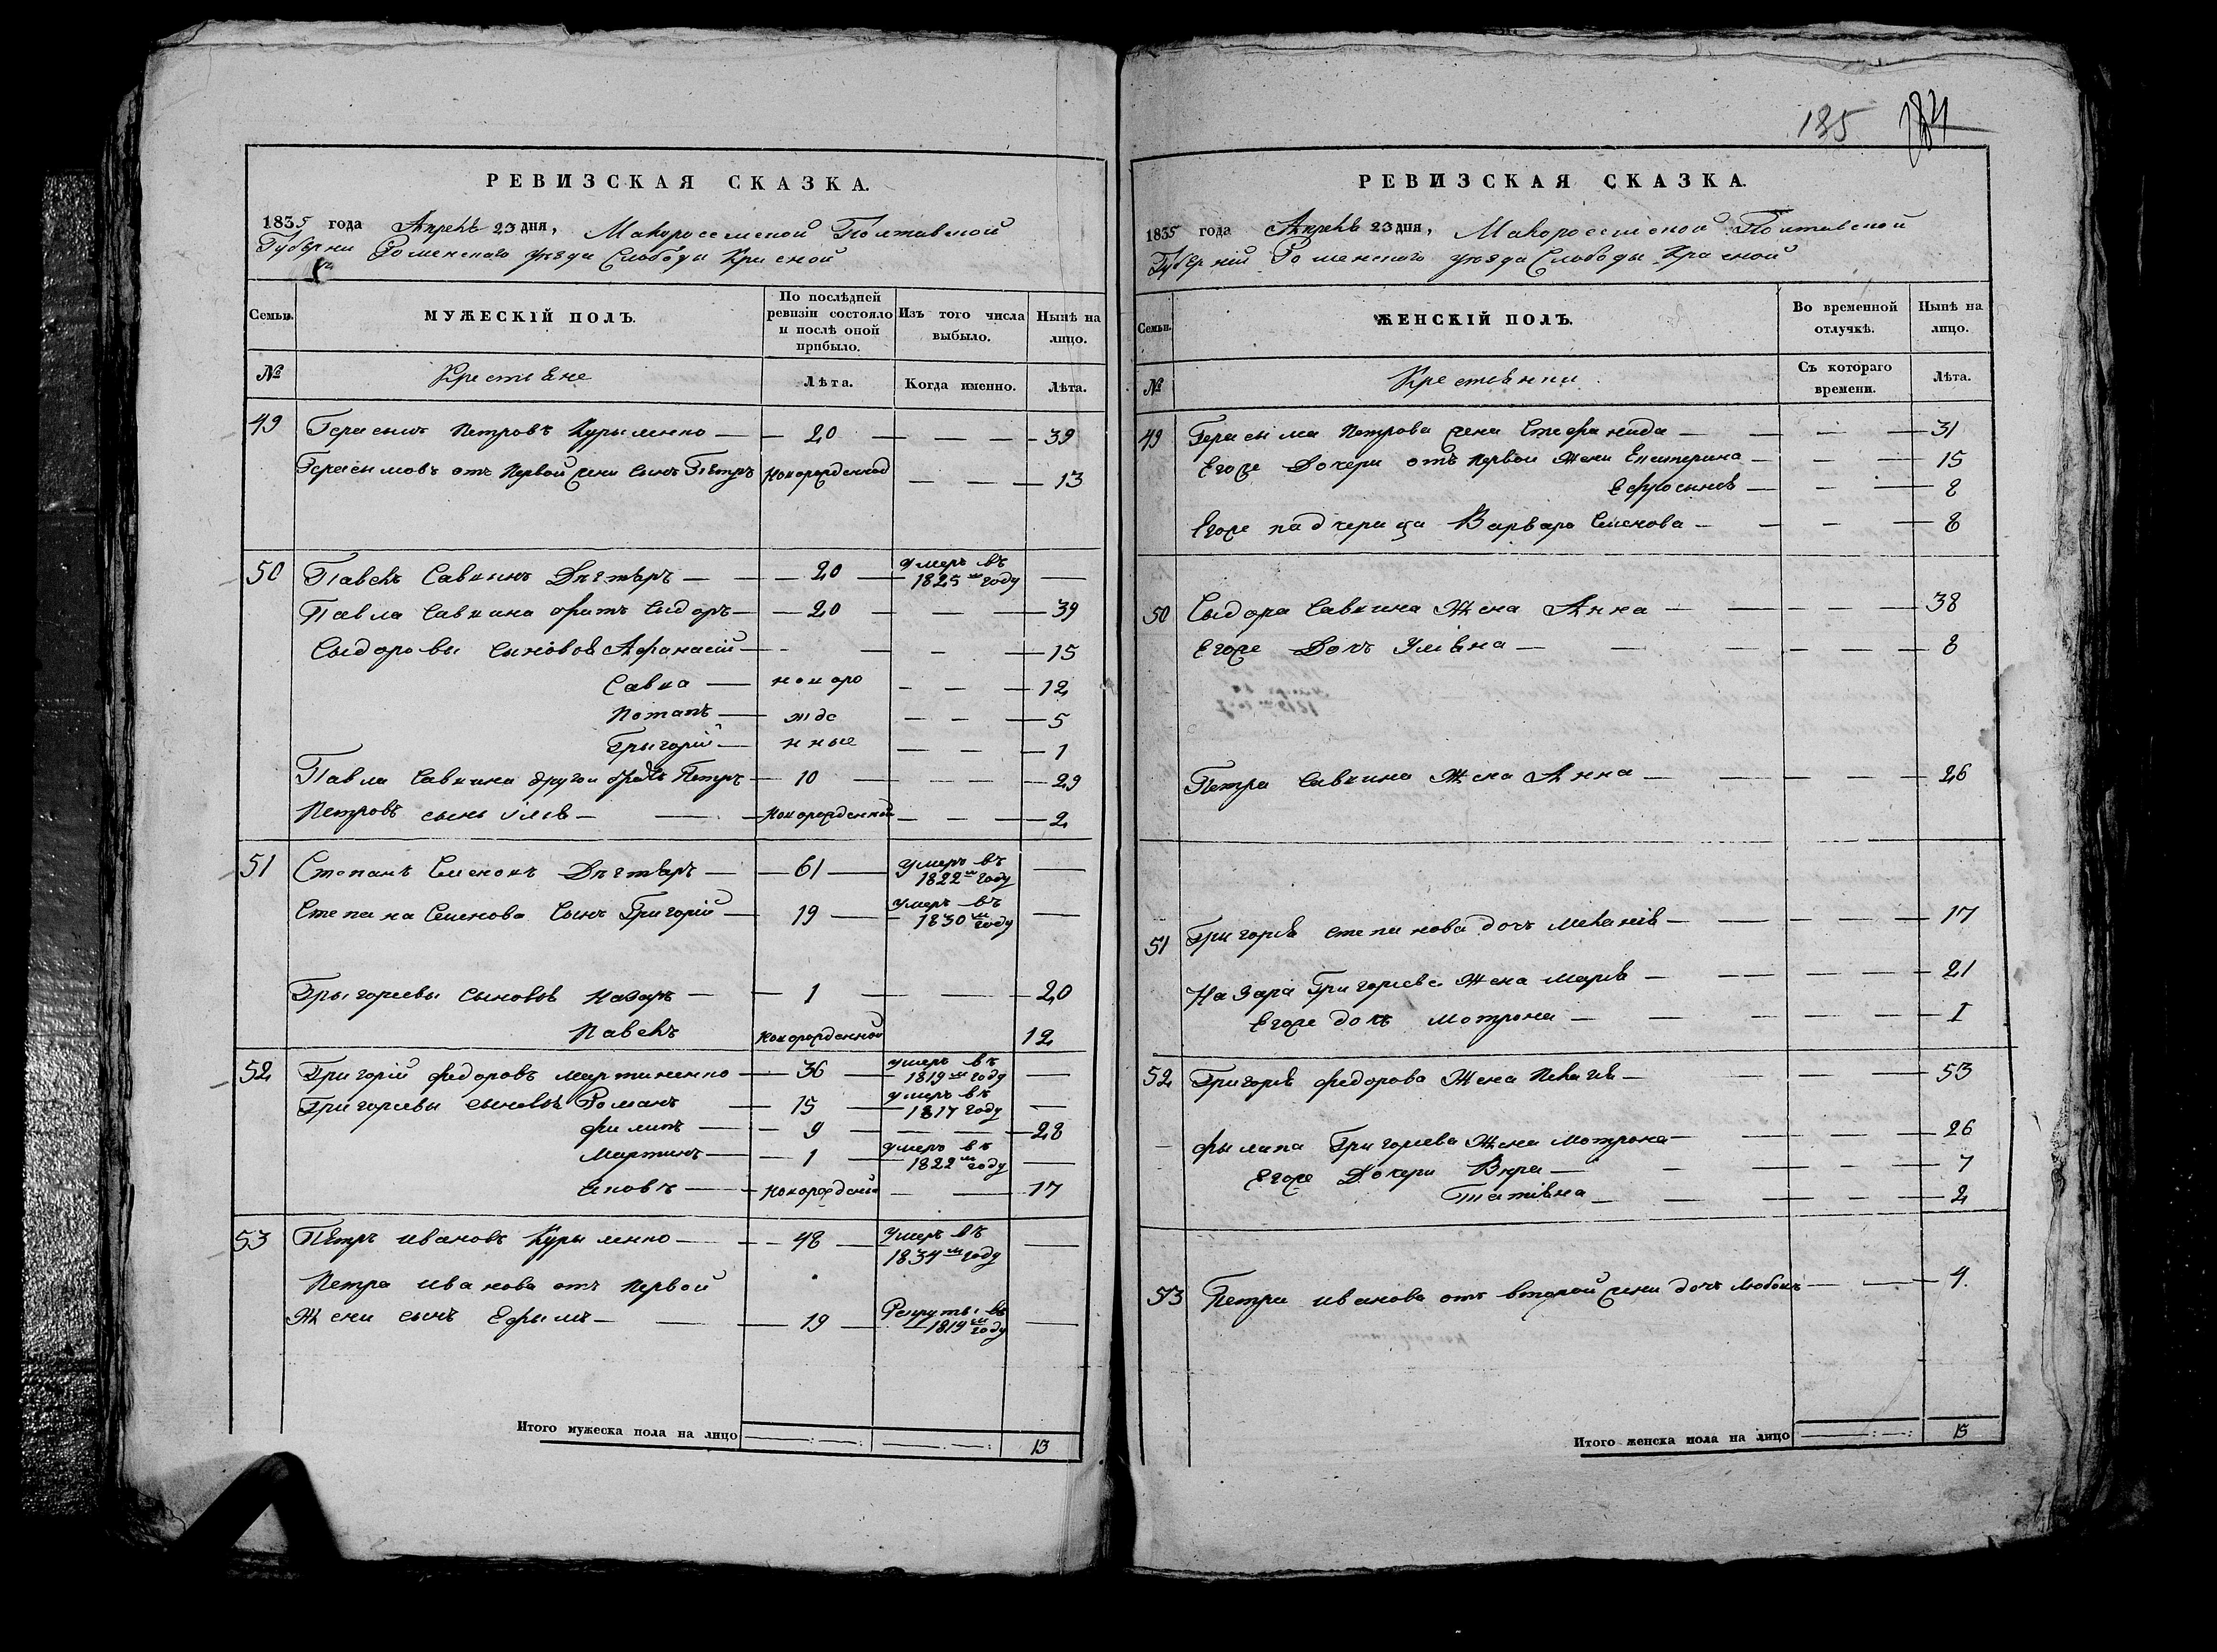 РЕВИЗСКАЯ СКАЗКА.
1835 года Апрель 23 дня, Малоросейской Полтавской
Губерни Роменскаго уезда Слободы Красной
Семьи.
МУЖЕСКІЙ ПОЛЪ.
По послѣдней ревизіи состояло и послѣ оной прибыло.
Изъ того числа выбыло.
Нынѣ на лицо.
№
Крестьяне
Лѣта.
Когда именно.
Лѣта.
49 Герасымъ Петровъ Курыленко — 20 — — — 39
Герасымовъ отъ первой жени сынъ Петръ новорожденной — — 13
50 Павелъ Савкинъ Дѣгтяръ — 20 — умеръ въ 1825м году —
Павла Савкина братъ Сыдоръ — 20 — — — 39
Сыдоровы сыновя Афанасій — — — 15
Савка — новоро — — 12
Потапъ — жде — — 5
Григорій — нные — — 1
Павла Савкина другой братъ Петръ — 10 — — — 29
Петровъ сынъ Ілія — — новорожденной — — 2
51 Степанъ Семеновъ Дѣгтяръ — 61 — умеръ въ 1822м году —
Степана Семенова сынъ Григорій — 19 — умеръ въ 1830м году —
Григориевы сыновя Назаръ — 1 — — 20
Павелъ новорожденной 12
52 Григорій Федоровъ Мартиненко — 36 — умеръ въ 1819м году —
Григориевы сыновя Романъ — 15 — умеръ въ 1817 году —
Филипъ — 9 — — — 28
Мартинъ — 1 — умеръ въ 1822м году —
Яковъ — новорожденій — — 17
53 Петръ Ивановъ Курыленко — 48 — умеръ въ 1834м году —
Петра Иванова отъ первой
жени сынъ Ефымъ — — 19 — Рекруты въ 1819м году —
Итого мужеска пола на лицо 13
185 184
РЕВИЗСКАЯ СКАЗКА.
1835 года Апрель 23 дня, Малоросейской Полтавской
Губерній Роменского уезда Слободы Красной
Семьи.
ЖЕНСКІЙ ПОЛЪ.
Во временной отлучкѣ.
Нынѣ на лицо.
№
Крестянки
Съ котораго времени.
Лѣта.
49 Герасыма Петрова жена Стефанида — — — 31
Егоже дочери отъ первой жени Екатерина — — — 15
Ефросиния — — — 8
Егоже падчерица Варвара Семенова — — — 8
50 Сыдора Савкина жена Анна — — — 38
Егоже дочъ Улияна — — — 8
Петра Савкина жена Анна — — — 26
51 Григория Степанова дочъ Мелания — — — 17
Назара Григориева жена Мария — — — 21
Егоже дочъ Мотрона — — — 1
52 Григория Федорова жена Пелагия — 53
Филипа Григориева жена Мотрона — — — 26
Егоже дочери Вѣра — — — 7
Татияна — — — 2
53 Петра Иванова отъ второй жени дочъ Любовъ — — 4
Итого женска пола на лицо 15